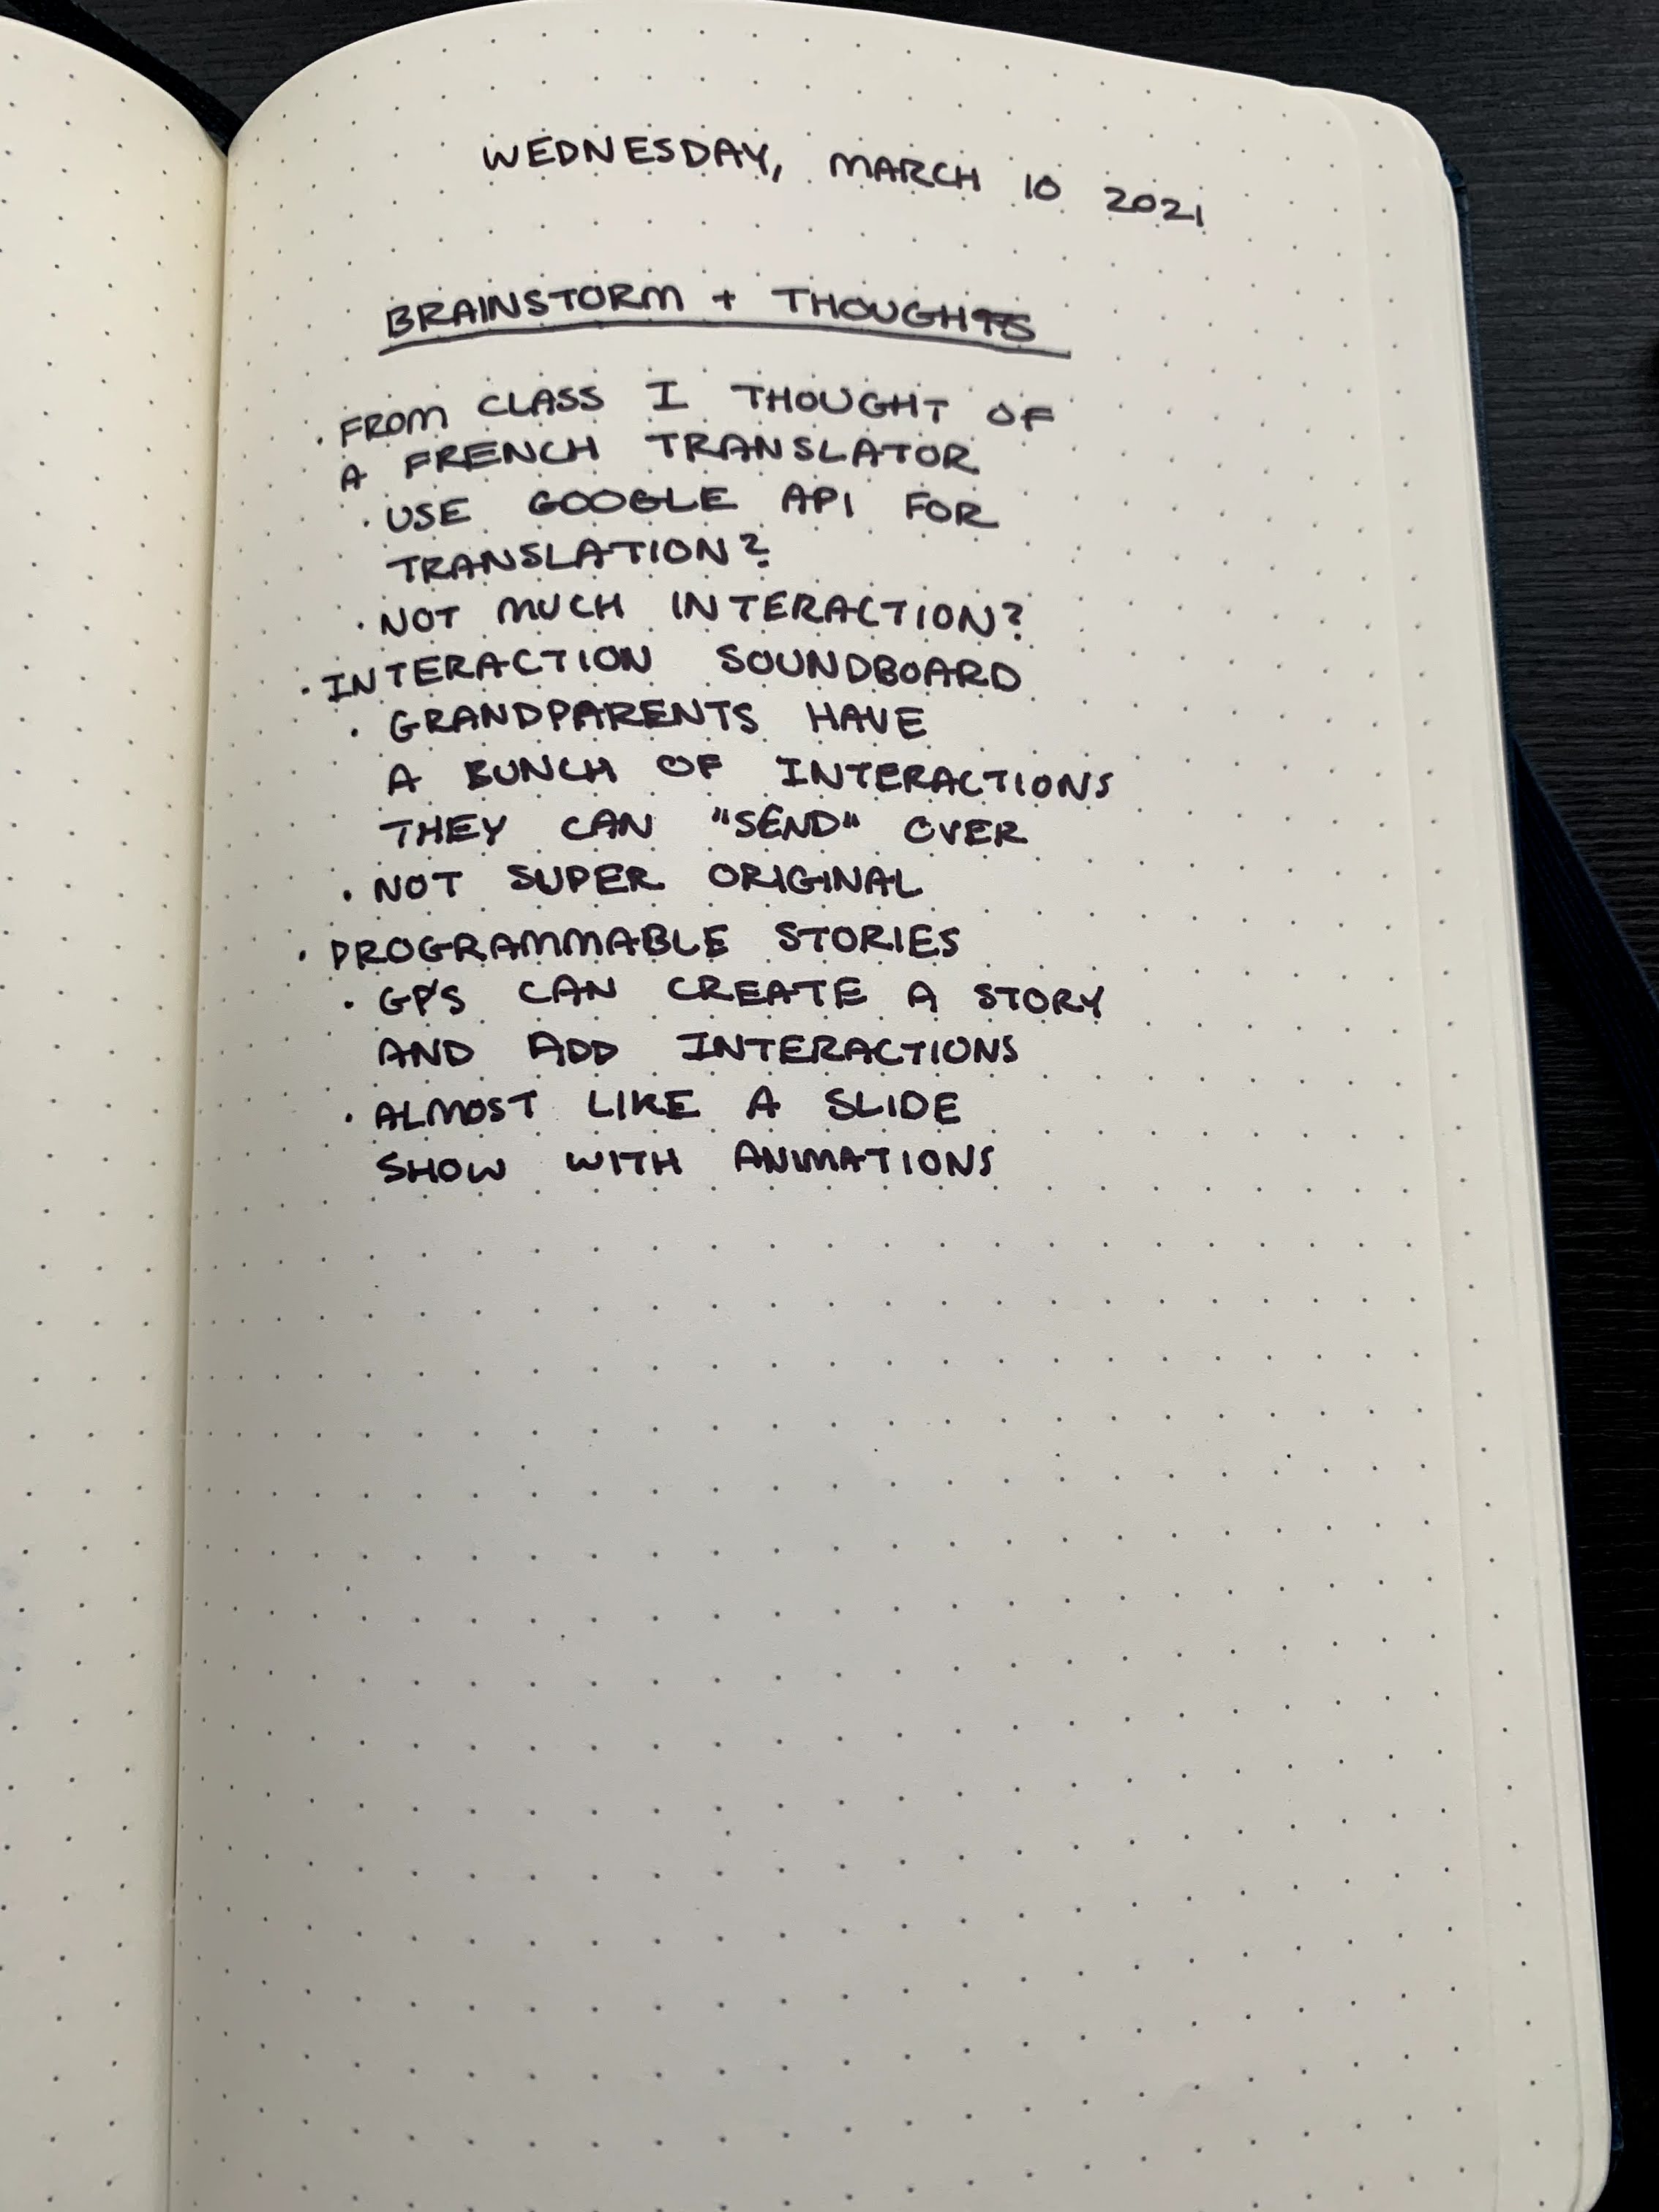 WEDNESDAY, MARCH 10 2021
BRAINSTORM + THOUGHTS
· FROM CLASS I THOUGHT OF
A FRENCH TRANSLATOR
· USE GOOGLE API FOR
TRANSLATION?
· NOT MUCH INTERACTION?
· INTERACTION SOUNDBOARD
· GRANDPARENTS HAVE
A BUNCH OF INTERACTIONS
THEY CAN "SEND" OVER
· NOT SUPER ORIGINAL
· PROGRAMMABLE STORIES
· GP'S CAN CREATE A STORY
AND ADD INTERACTIONS
· ALMOST LIKE A SLIDE
SHOW WITH ANIMATIONS